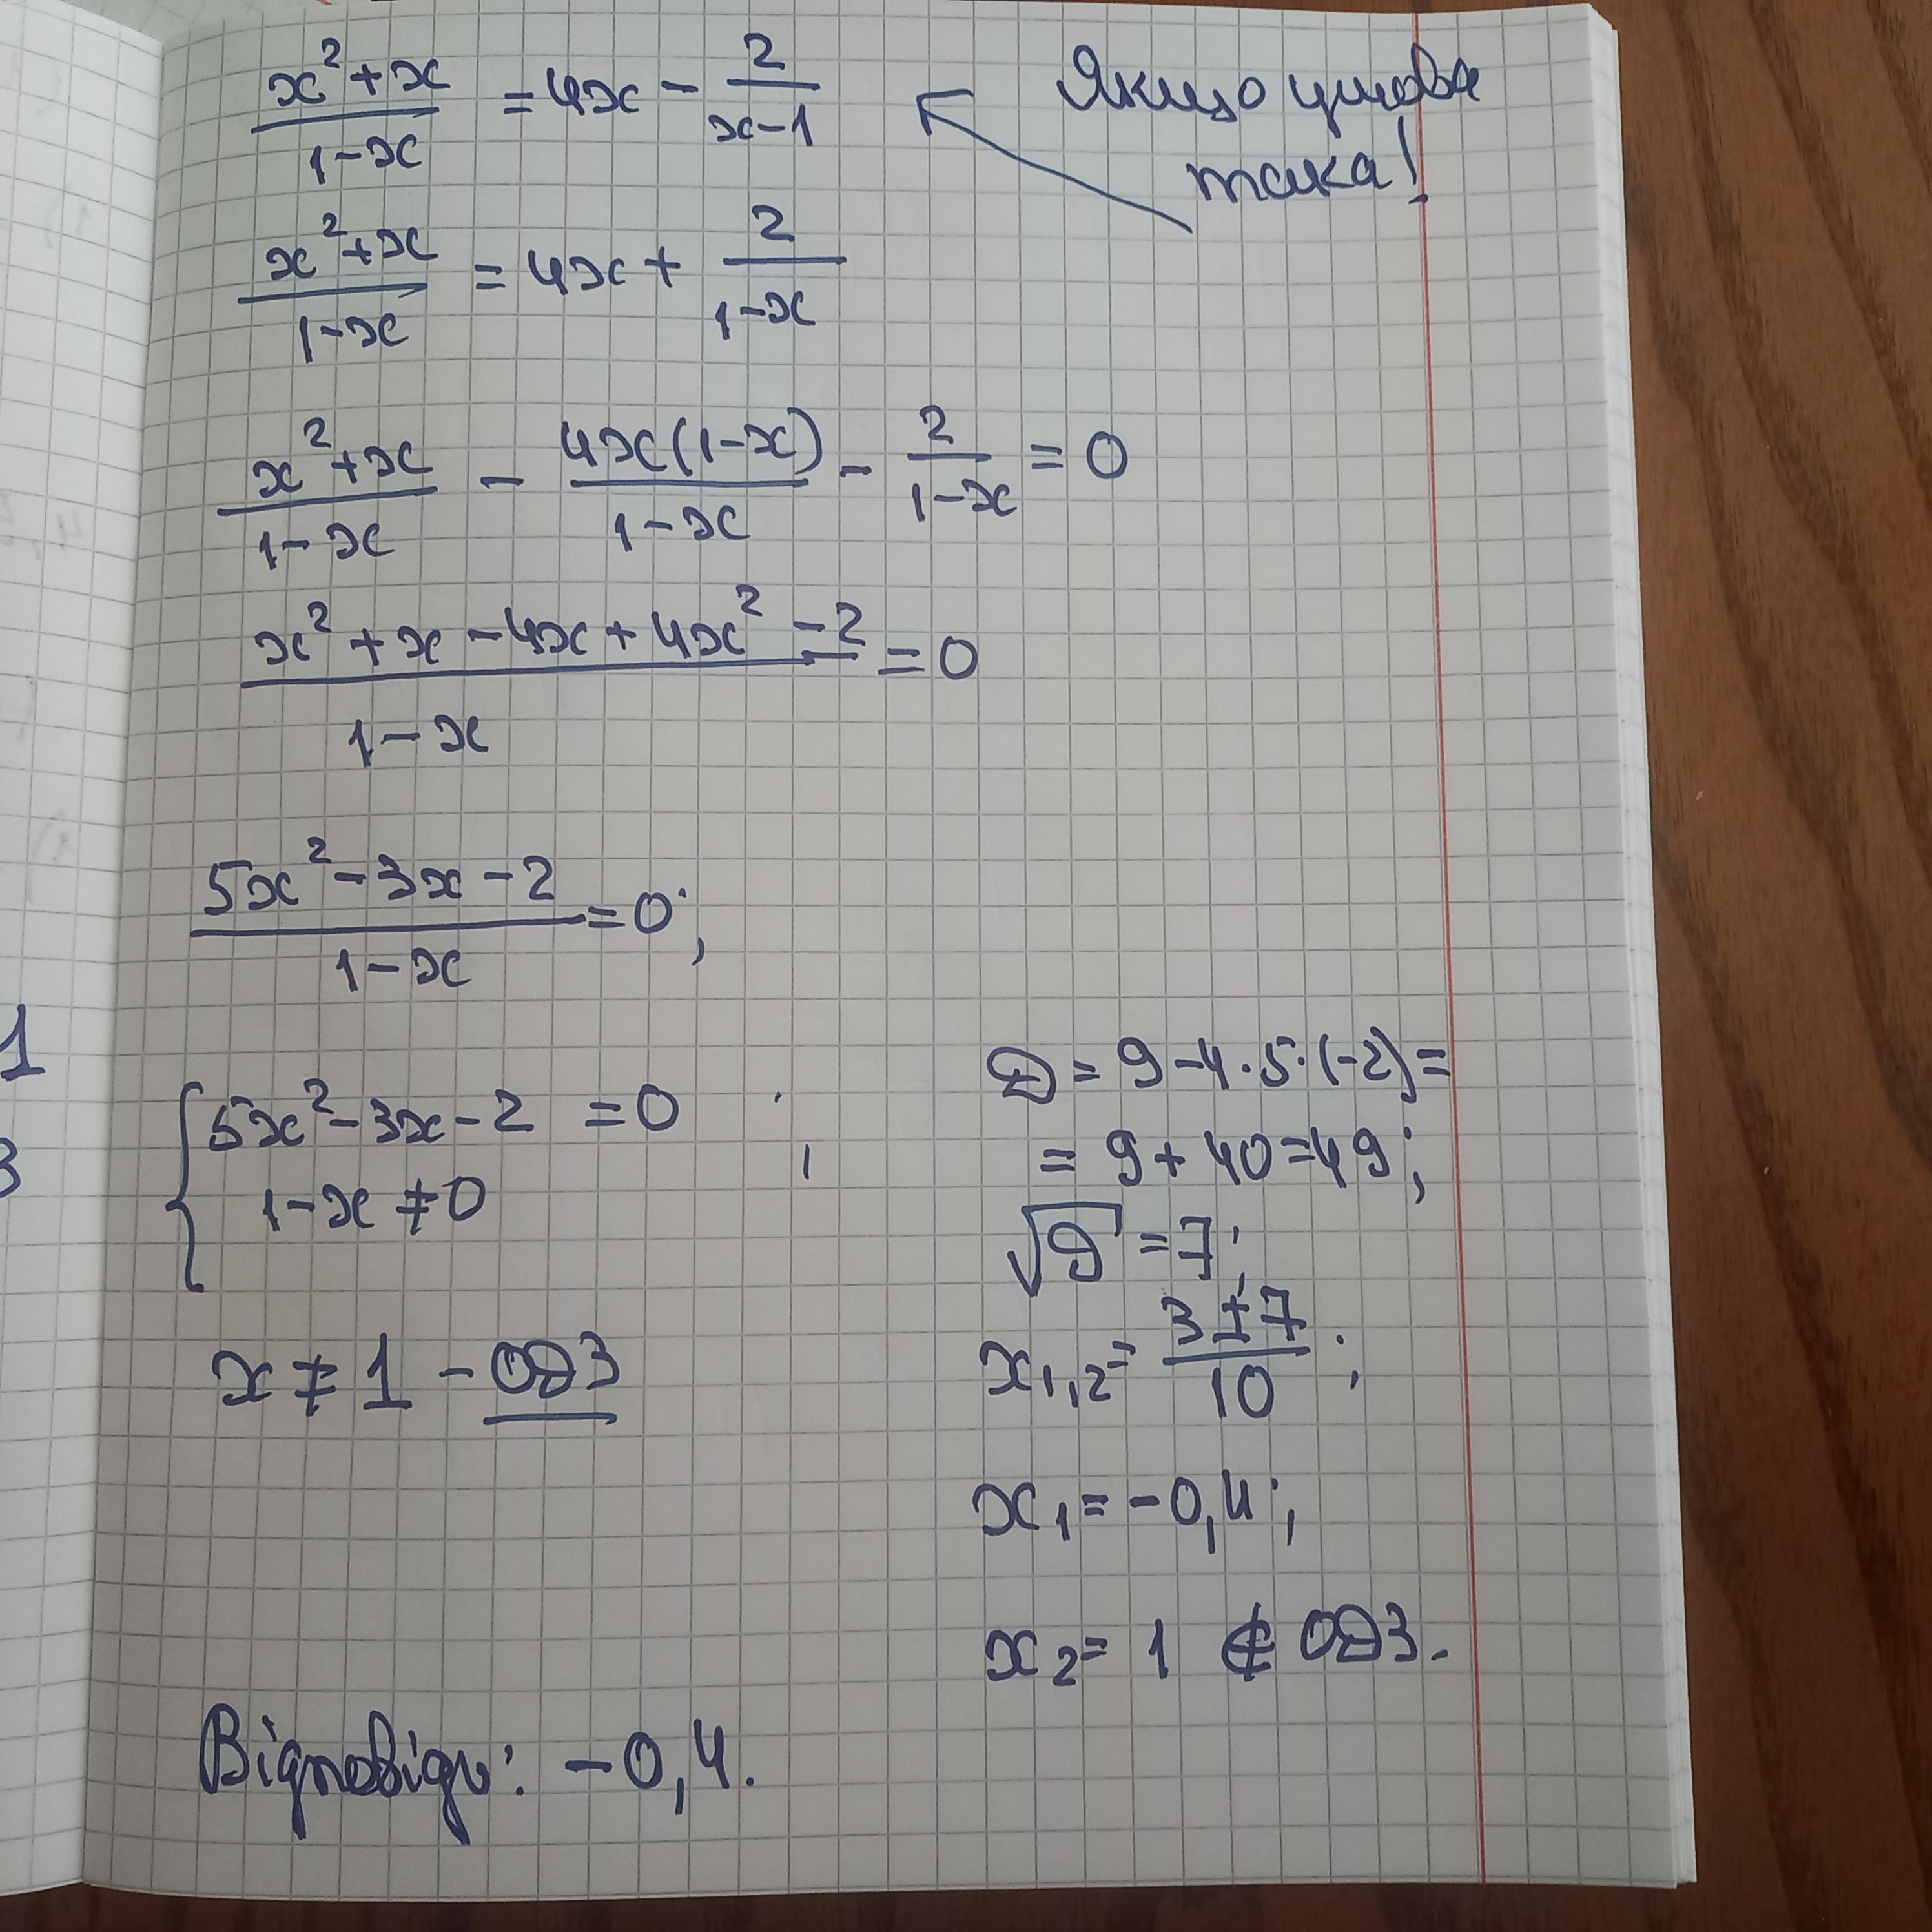 (x²+x)/(1-x) = 4x - 2/(x-1)
Якщо умова
така!
(x²+x)/(1-x) = 4x + 2/(1-x)
(x²+x)/(1-x) - 4x(1-x)/(1-x) - 2/(1-x) = 0
(x²+x-4x+4x²-2)/(1-x) = 0
(5x²-3x-2)/(1-x) = 0;
{ 5x²-3x-2 = 0
1-x ≠ 0 ;
x ≠ 1 - ОДЗ
D = 9-4·5·(-2)=
= 9+40=49;
√D = 7;
x₁,₂ = (3±7)/10;
x₁ = -0,4;
x₂ = 1 ∉ ОДЗ.
Відповідь: -0,4.
1
3